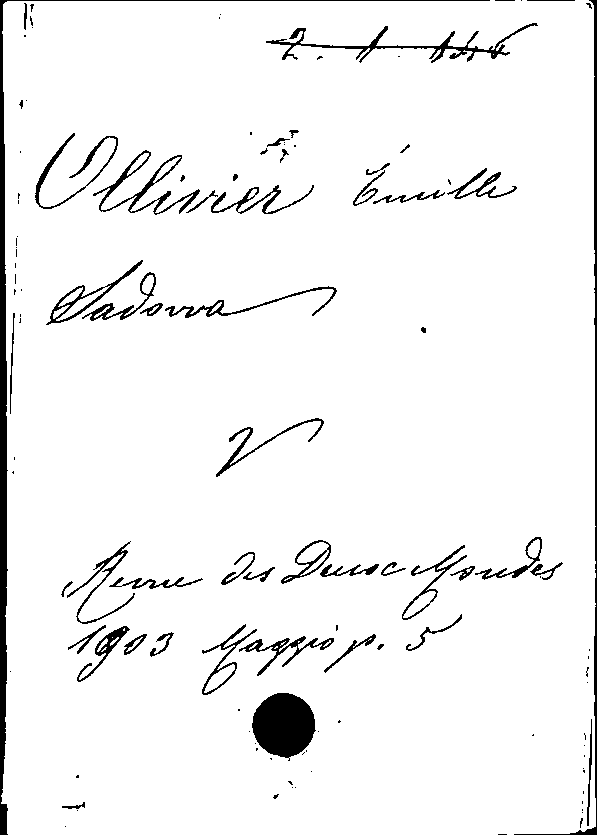 Ollivier Émille
Sadowa
V
Revue des Deux Mondes
1903 Maggio p. 5